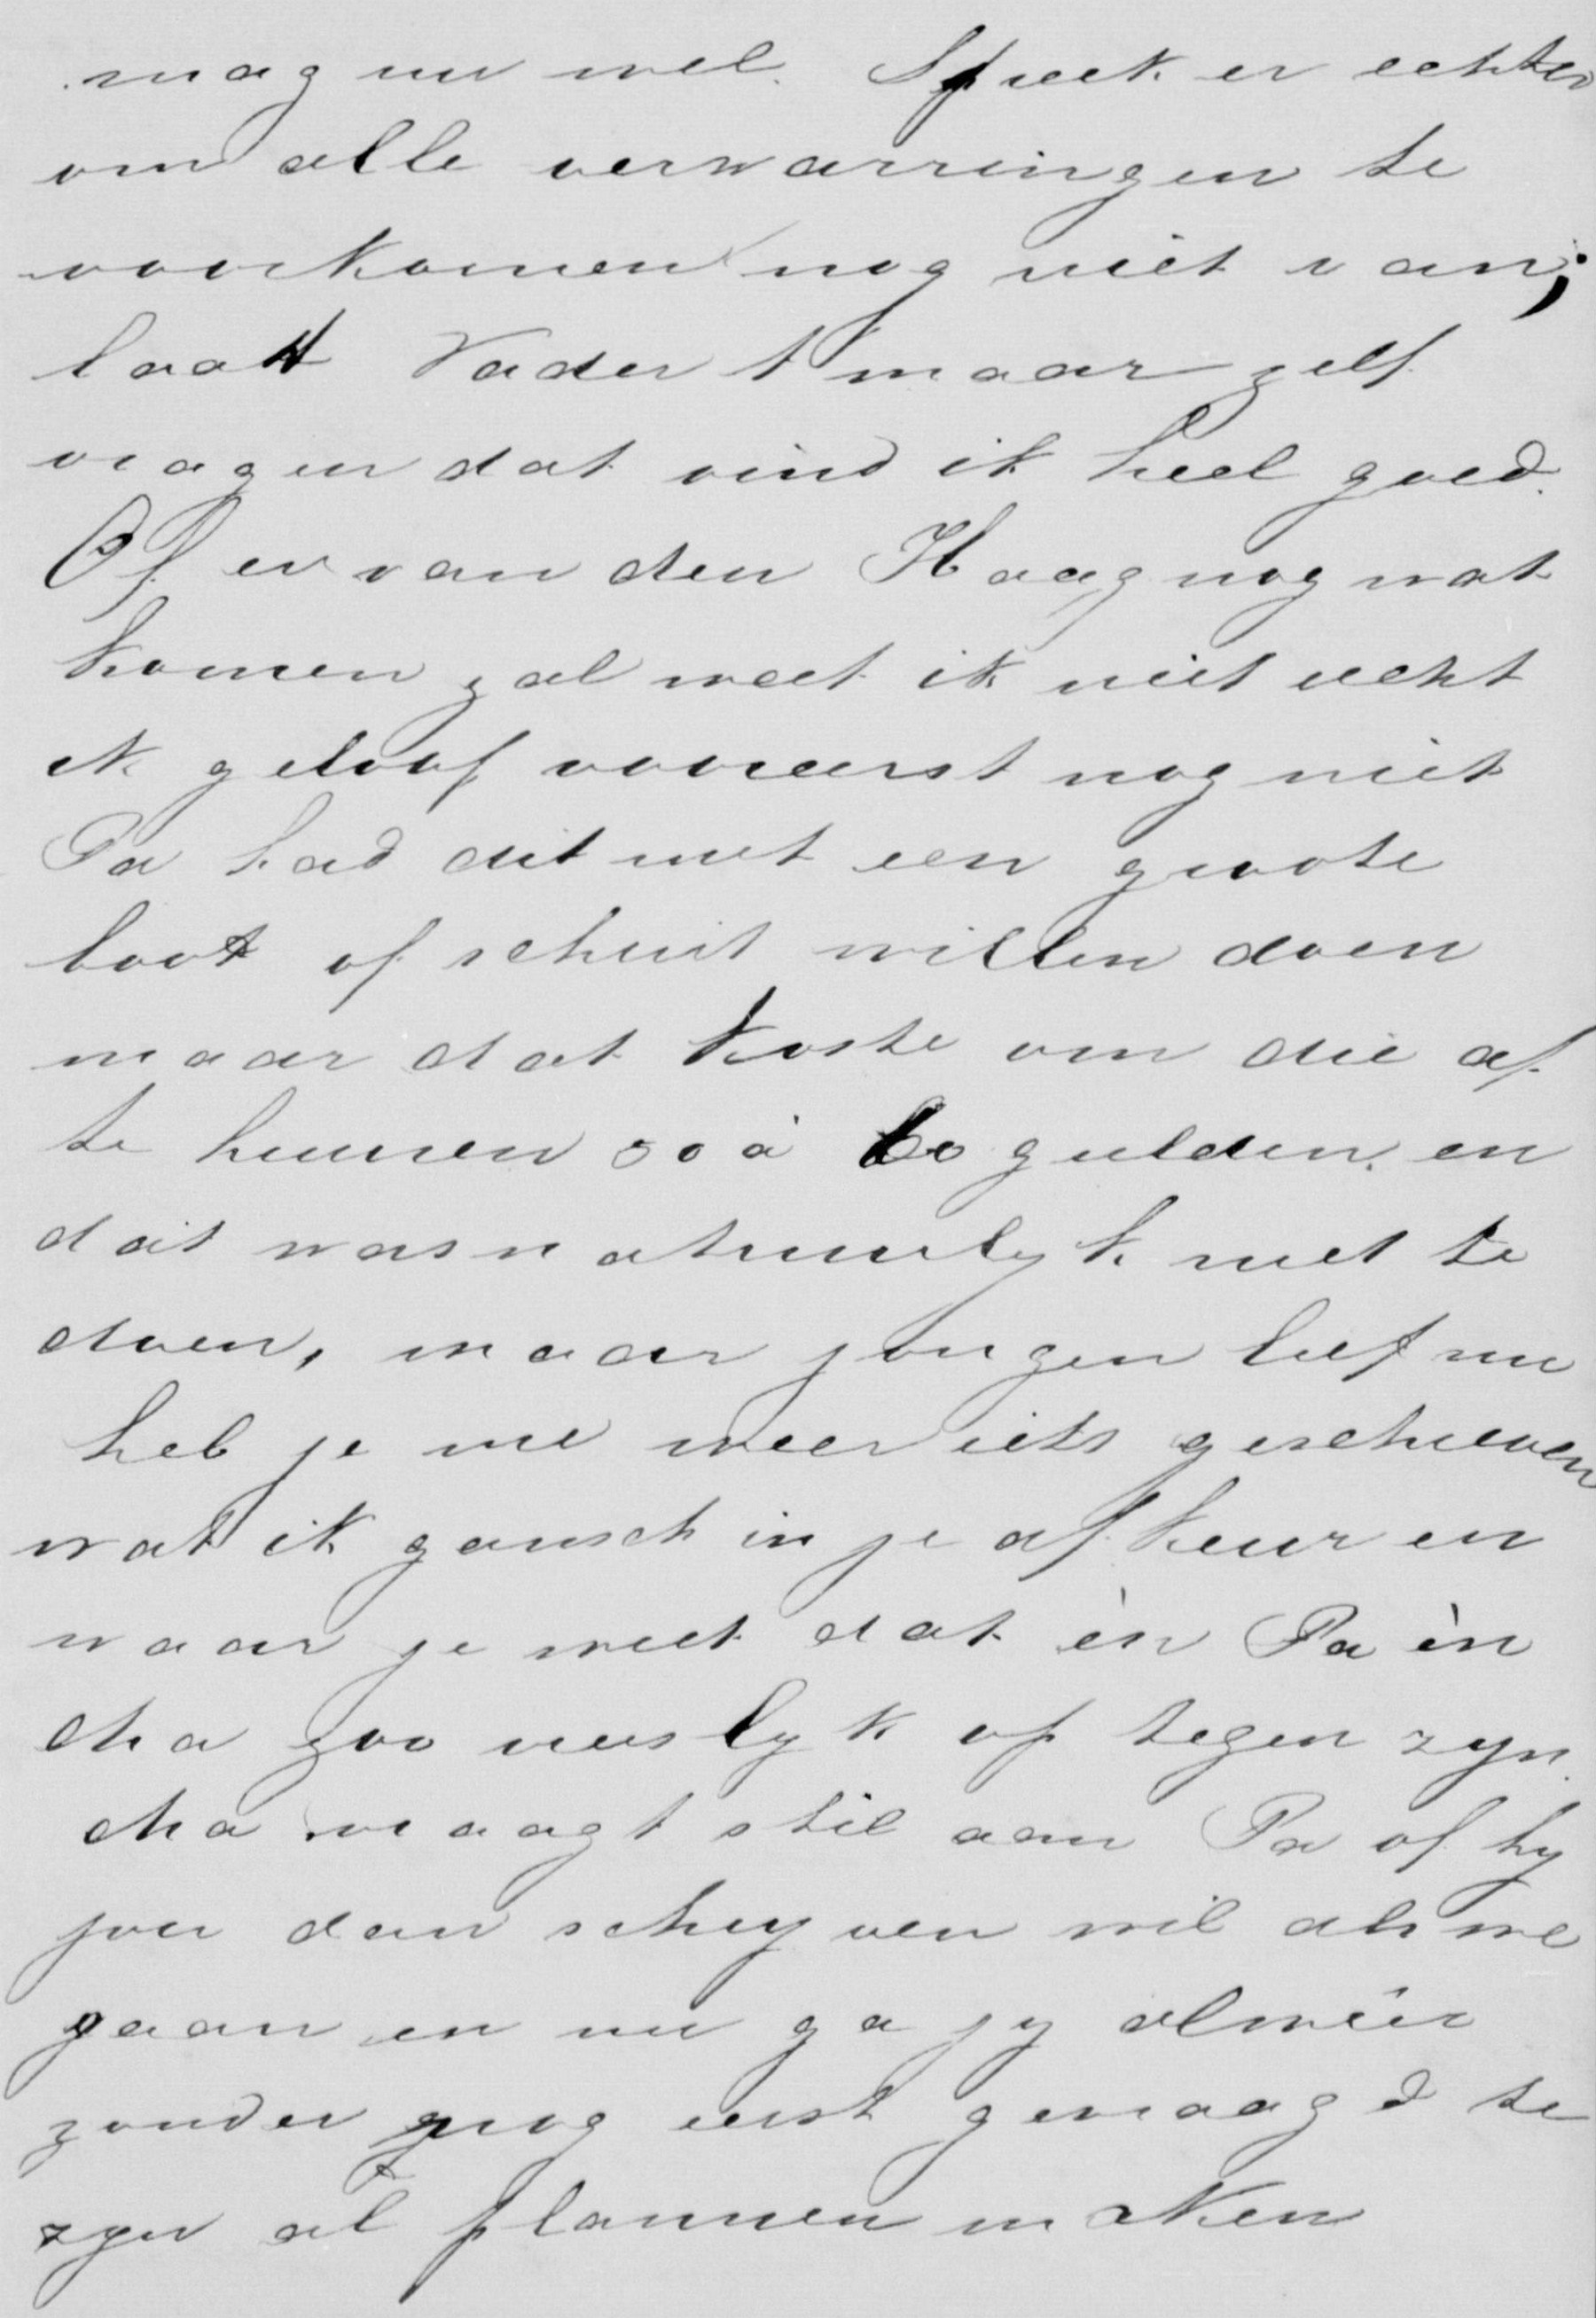 mag nu wel. Spreek er echter
om alle verwarringen te
voorkomen nog niet van;
laat Vader t maar zelf
vragen dat vind ik heel goed.
Of er van den Haag nog wat
komen zal weet ik niet recht
ik geloof vooreerst nog niet
Pa had dit met een groote
boot of schuit willen doen
maar dat koste om die af
te huuren 50 à 60 gulden. en
dat was natuurlyk niet te
doen, maar jongen lief nu
heb je me weer iets geschreven
wat ik gansch in je afkeur en
waar je weet dat èn Pa èn
Ma zoo vreeslyk op tegen zyn.
Ma vraagt stil aan Pa of hy
jou dan schryven wil als we
gaan en nu ga jy alweêr
zonder nog eerst gevraagd te
zyn al plannen maken